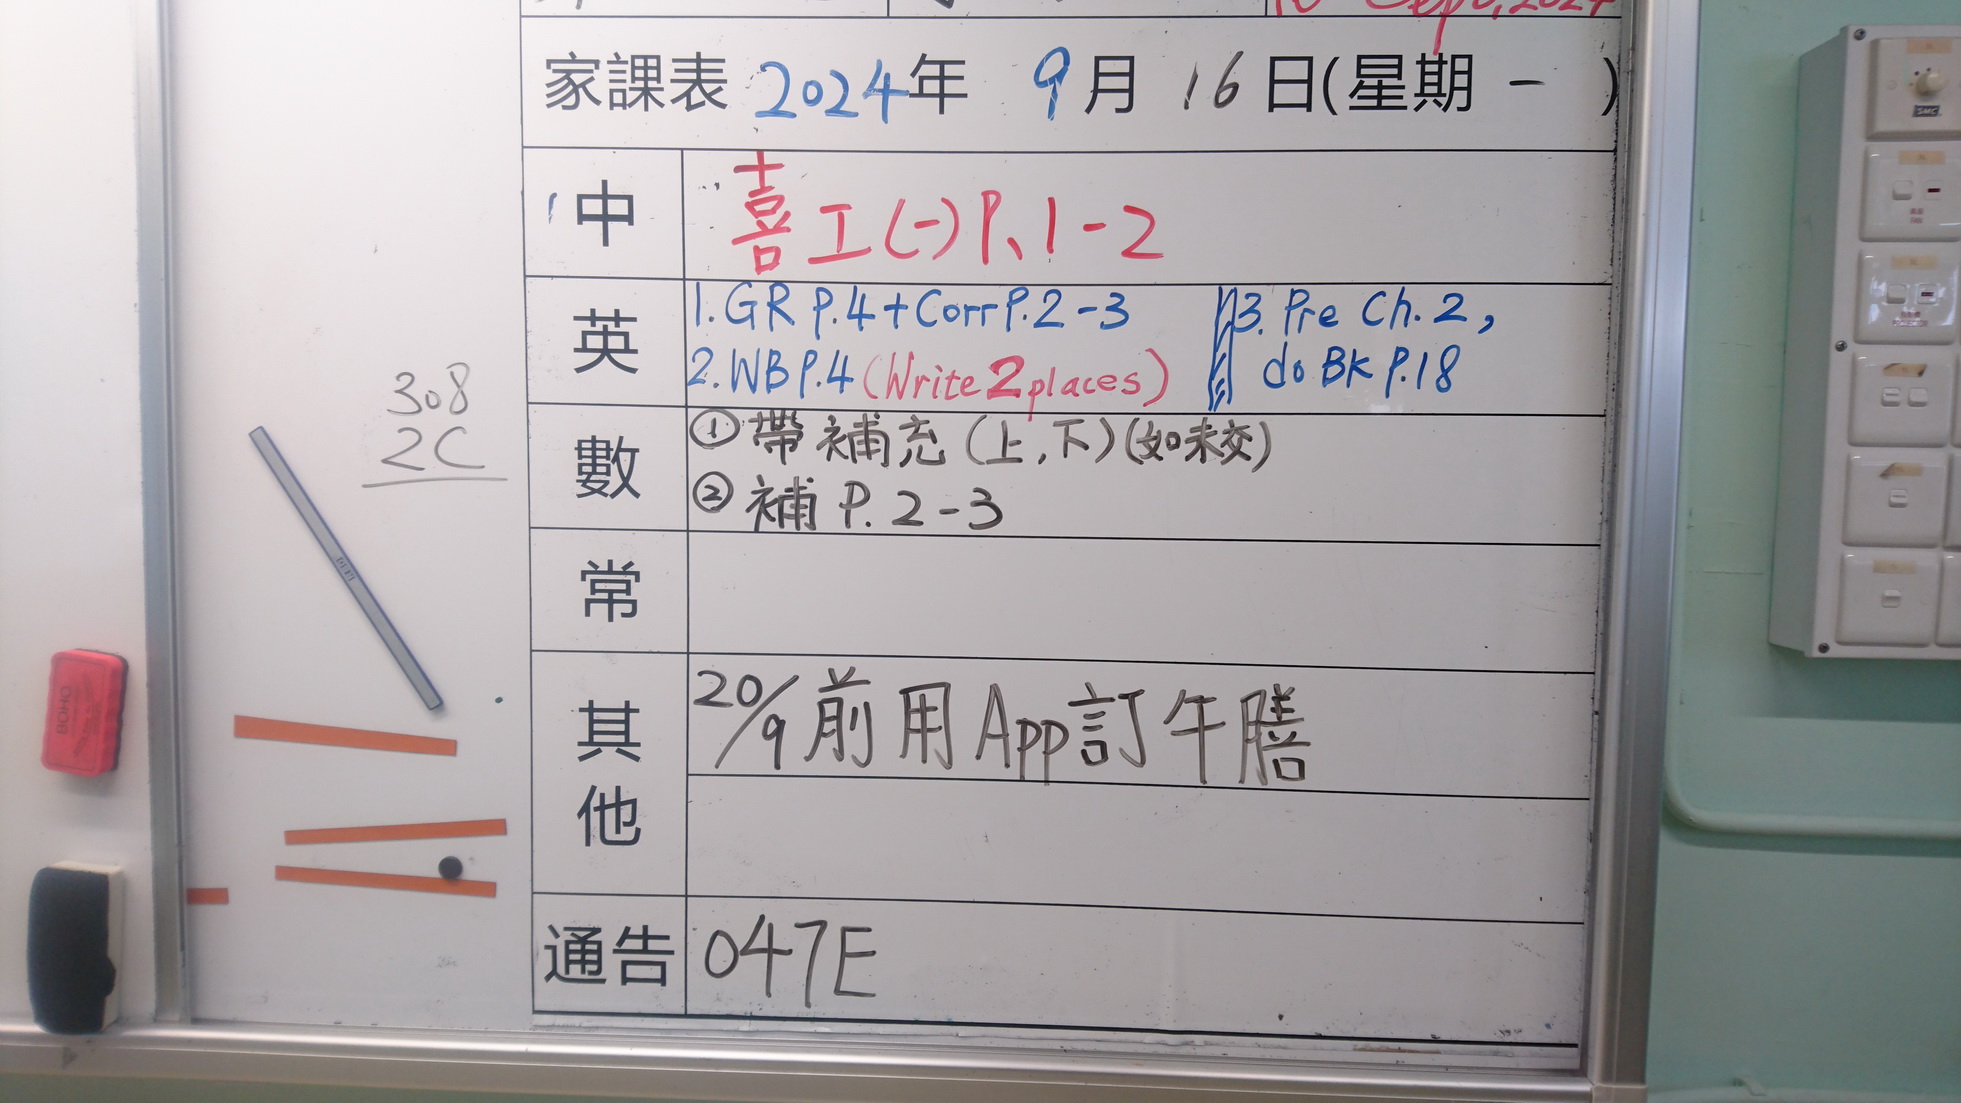 16 Sept, 2024
家課表 2024年 9月 16日(星期 一 )
中 喜工(一)P.1-2
英 1. GR P.4+Corr P.2-3
2. WB P.4 (Write 2 places)
3. Pre Ch. 2,
do BK P.18
308
2C
數 ① 帶補充(上,下)(如未交)
② 補 P. 2-3
常
其他 20/9 前用App訂午膳
通告 047E
BOHO
SMC
FAN